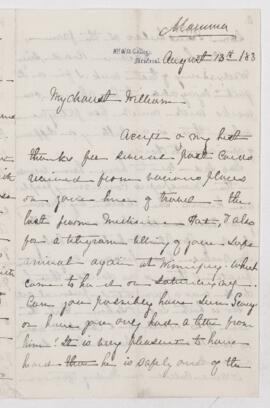 Mamma
August 13th / 83
My dearest William
Accept my best
thanks for several post cards
received from various places
on your line of travel - the
last from Medicine Hat, & also
for a telegram telling of your safe
arrival again at Winnipeg. which
came to hand on Saturday
Can you possibly have seen
or have you only had a letter from
him? It is very pleasant to have
heard he is safely out of the